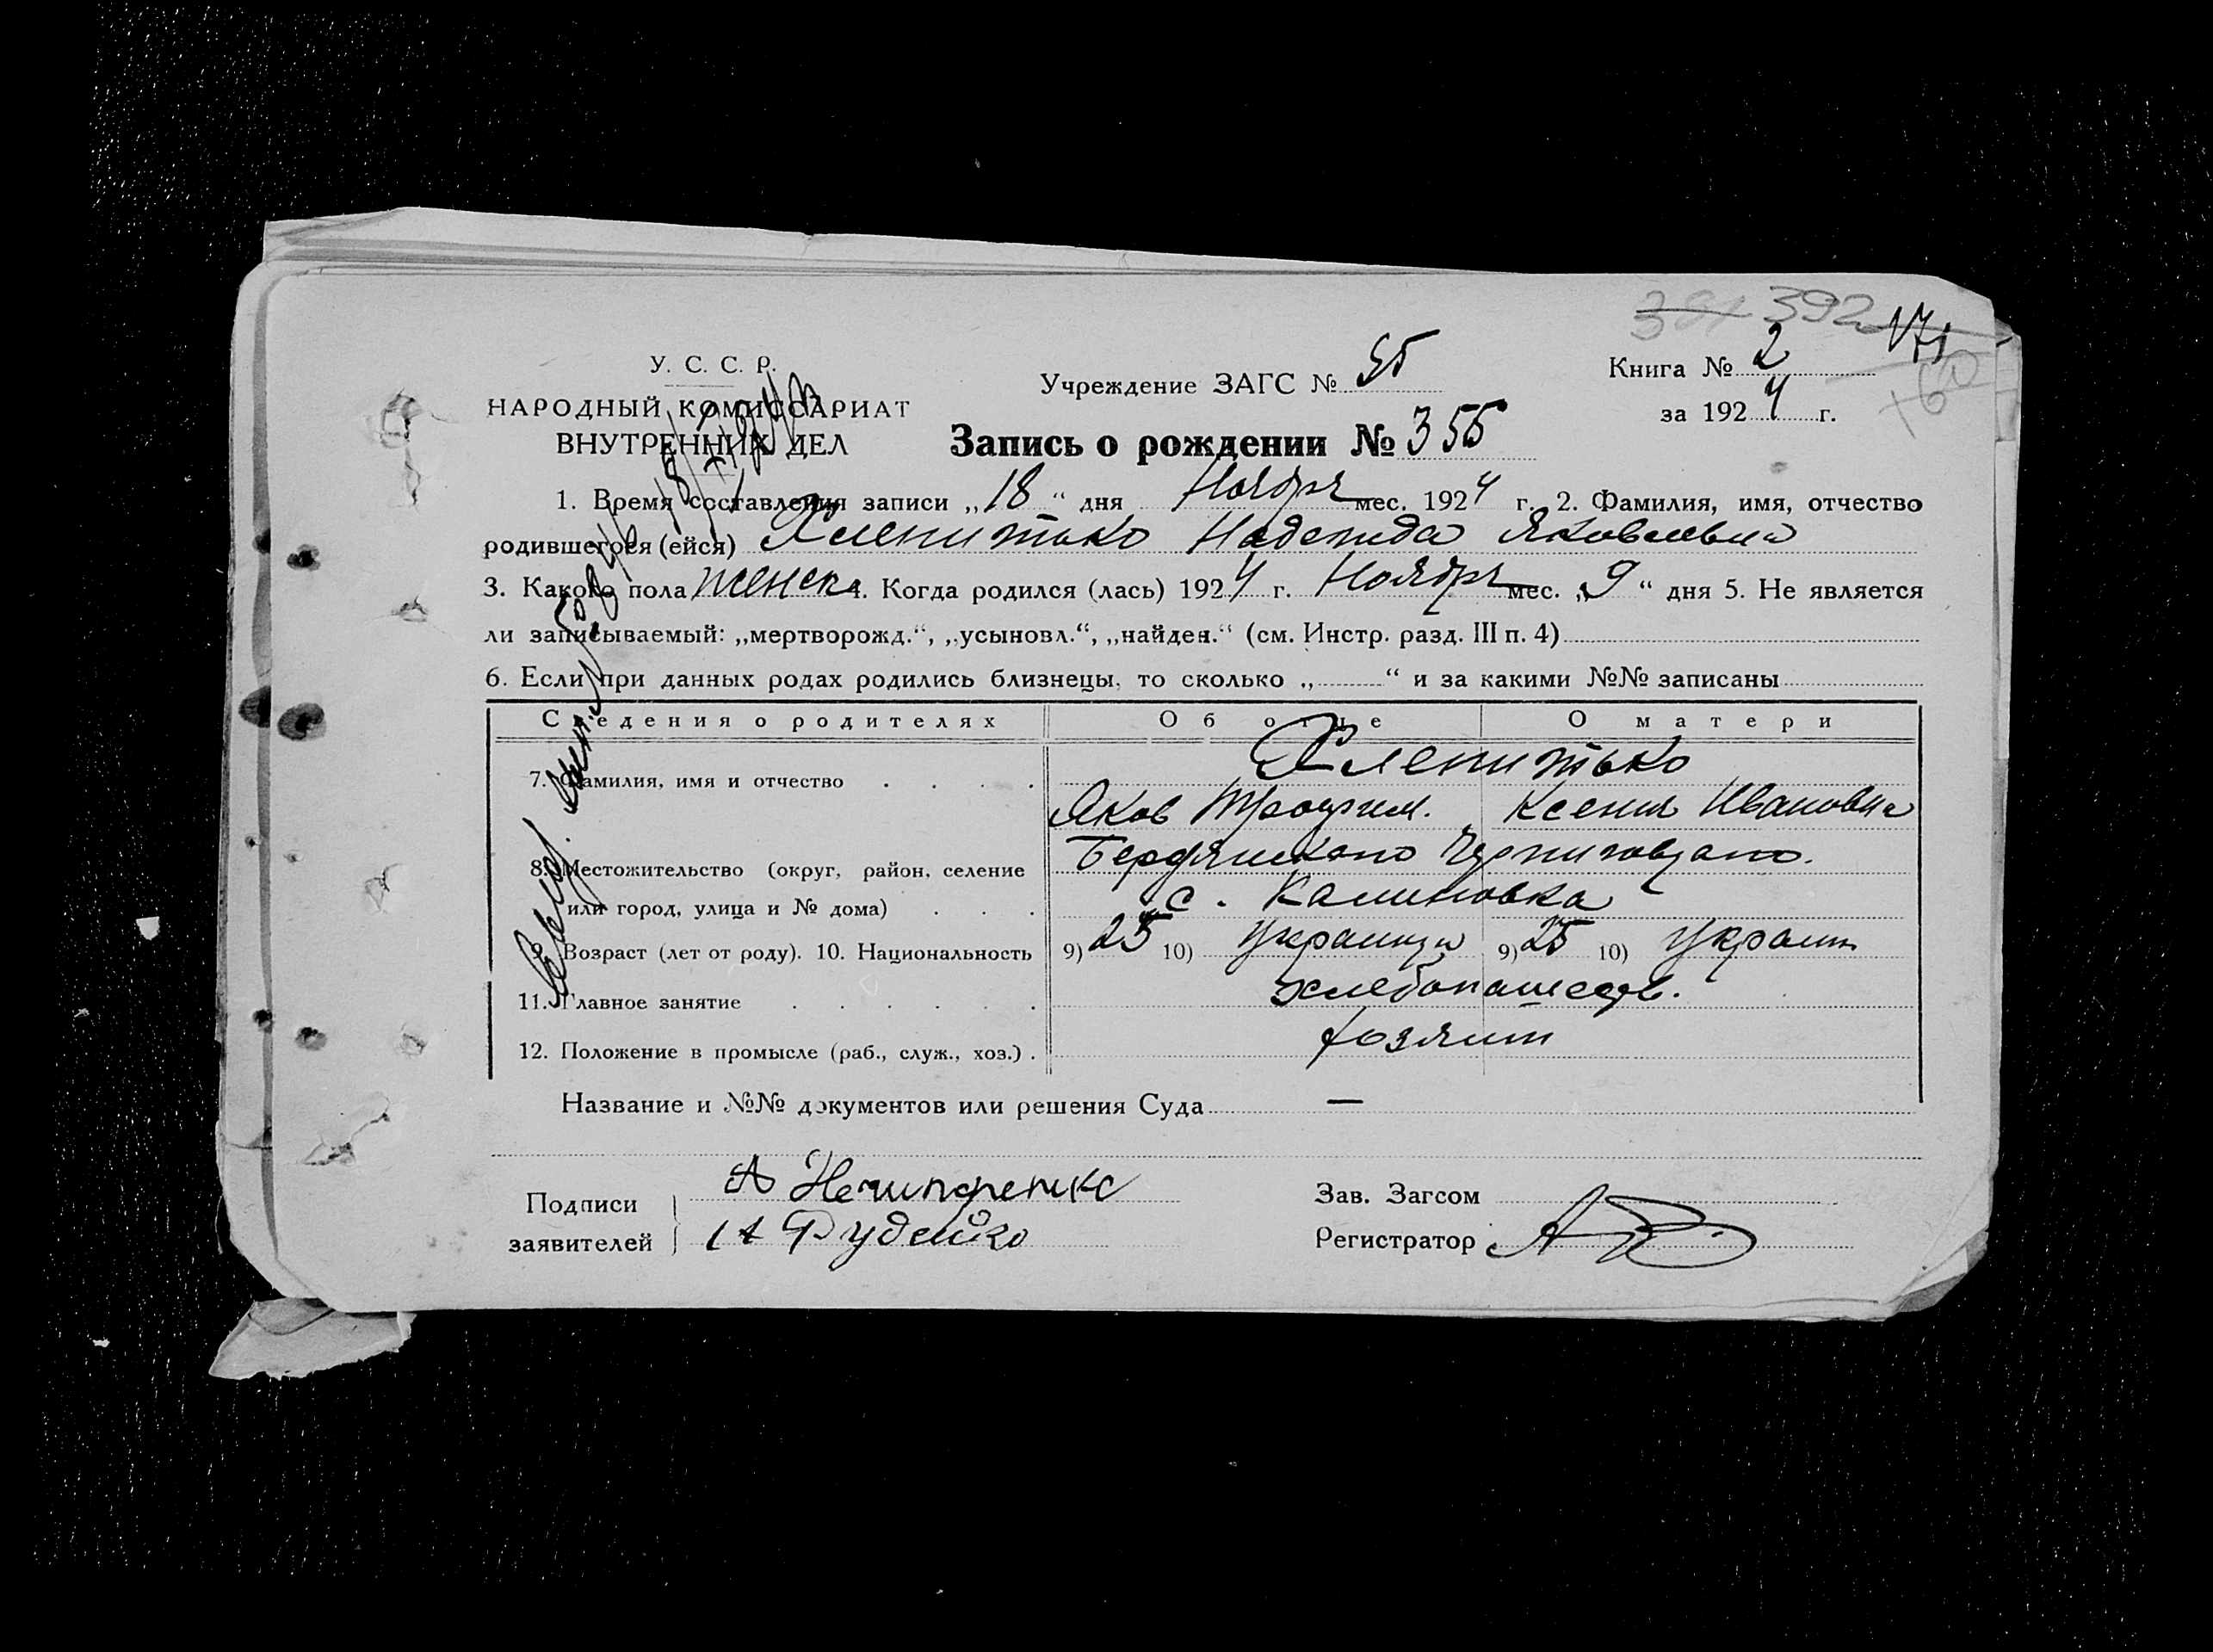 392
171
У. С. С. Р.
НАРОДНЫЙ КОМИССАРИАТ
ВНУТРЕННИХ ДЕЛ
Учреждение ЗАГС №
Книга № 2
за 1924 г.
Запись о рождении № 355
1. Время составления записи „18“ дня Ноября мес. 1924 г. 2. Фамилия, имя, отчество
родившегося (ейся) Хленитько Надежда Яковлевна
3. Какого пола женск 4. Когда родился (лась) 1924 г. Ноября мес. „9“ дня 5. Не является
ли записываемый: „мертворожд.“, „усыновл.“, „найден.“ (см. Инстр. разд. III п. 4)
6. Если при данных родах родились близнецы, то сколько „ “ и за какими №№ записаны
Сведения о родителях Об отце О матери
7. Фамилия, имя и отчество Хленитько
Яков Трофим. Ксения Ивановна
8. Местожительство (округ, район, селение Бердянского
или город, улица и № дома) с. Калиновка
9. Возраст (лет от роду). 10. Национальность 9) 25 10) Украинца 9) 25 10) Украин
11. Главное занятие
12. Положение в промысле (раб., служ., хоз.) хозяин
Название и №№ документов или решения Суда —
Подписи заявителей
А Нечипоренко
Зав. Загсом
Регистратор